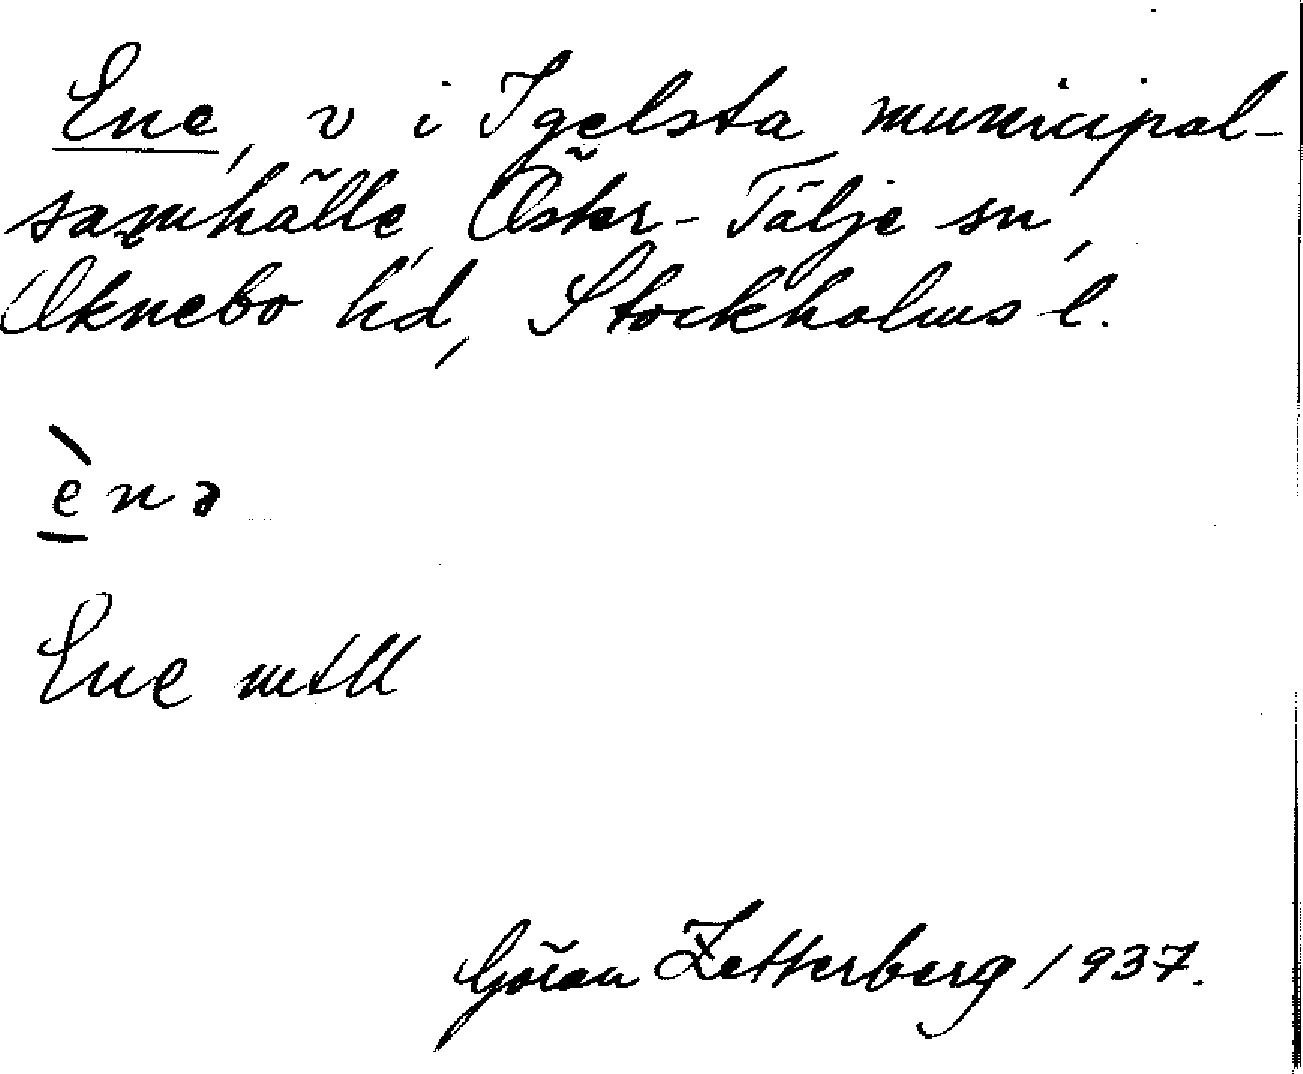 Ene, v i Igelsta municipal-
samhälle, Öster-Tälje sn,
Öknebo hd, Stockholms l.
è̱nə
Ene mtll
Göran Zetterberg 1937.